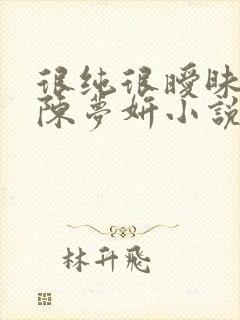 很纯很曖昧
陳夢妍小説
林升飛